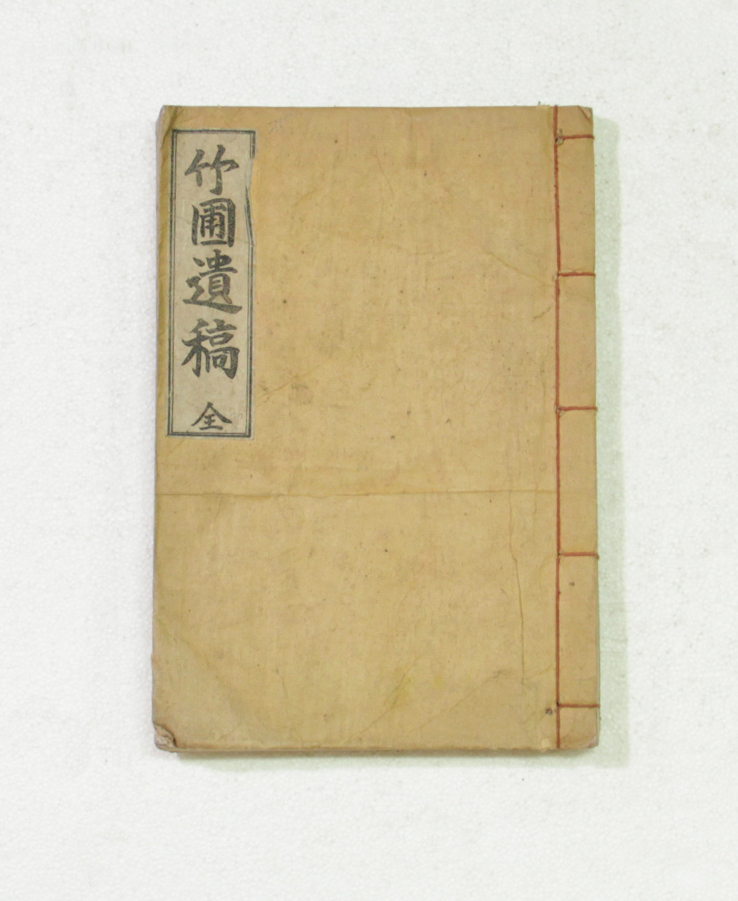 竹圃遺稿 全